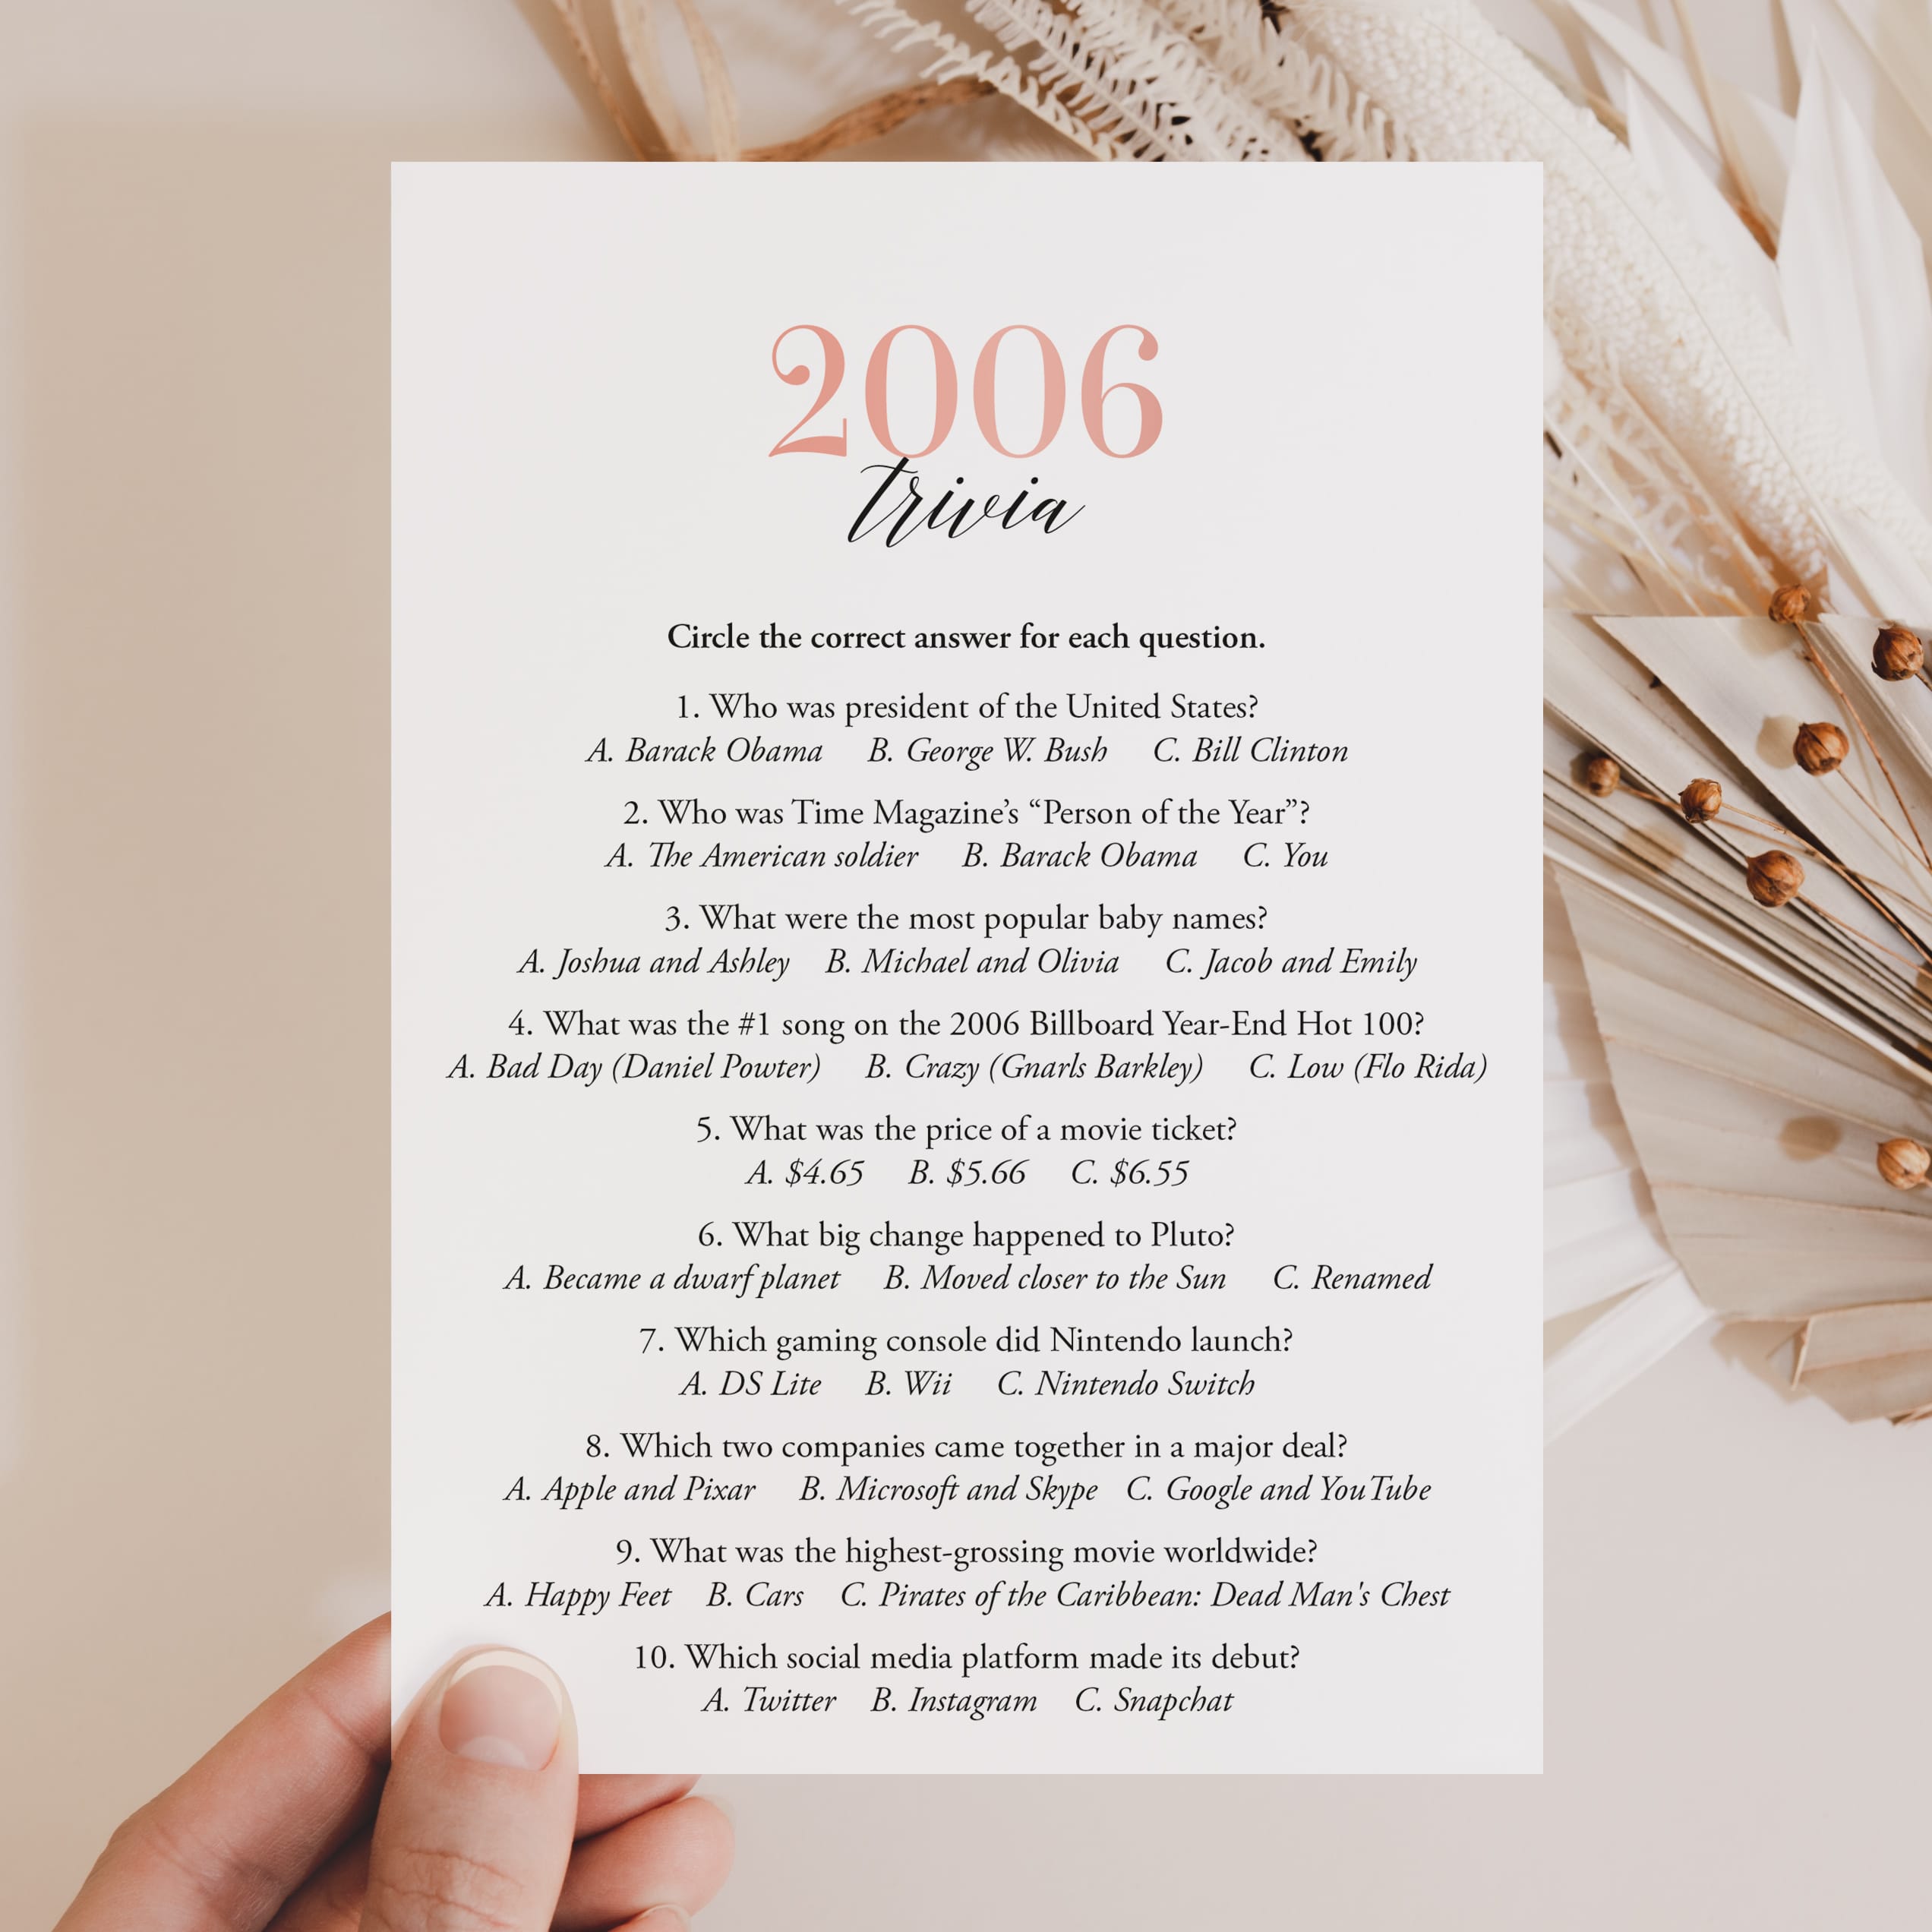 2006
trivia
Circle the correct answer for each question.
1. Who was president of the United States?
A. Barack Obama B. George W. Bush C. Bill Clinton
2. Who was Time Magazine’s “Person of the Year”?
A. The American soldier B. Barack Obama C. You
3. What were the most popular baby names?
A. Joshua and Ashley B. Michael and Olivia C. Jacob and Emily
4. What was the #1 song on the 2006 Billboard Year-End Hot 100?
A. Bad Day (Daniel Powter) B. Crazy (Gnarls Barkley) C. Low (Flo Rida)
5. What was the price of a movie ticket?
A. $4.65 B. $5.66 C. $6.55
6. What big change happened to Pluto?
A. Became a dwarf planet B. Moved closer to the Sun C. Renamed
7. Which gaming console did Nintendo launch?
A. DS Lite B. Wii C. Nintendo Switch
8. Which two companies came together in a major deal?
A. Apple and Pixar B. Microsoft and Skype C. Google and YouTube
9. What was the highest-grossing movie worldwide?
A. Happy Feet B. Cars C. Pirates of the Caribbean: Dead Man's Chest
10. Which social media platform made its debut?
A. Twitter B. Instagram C. Snapchat